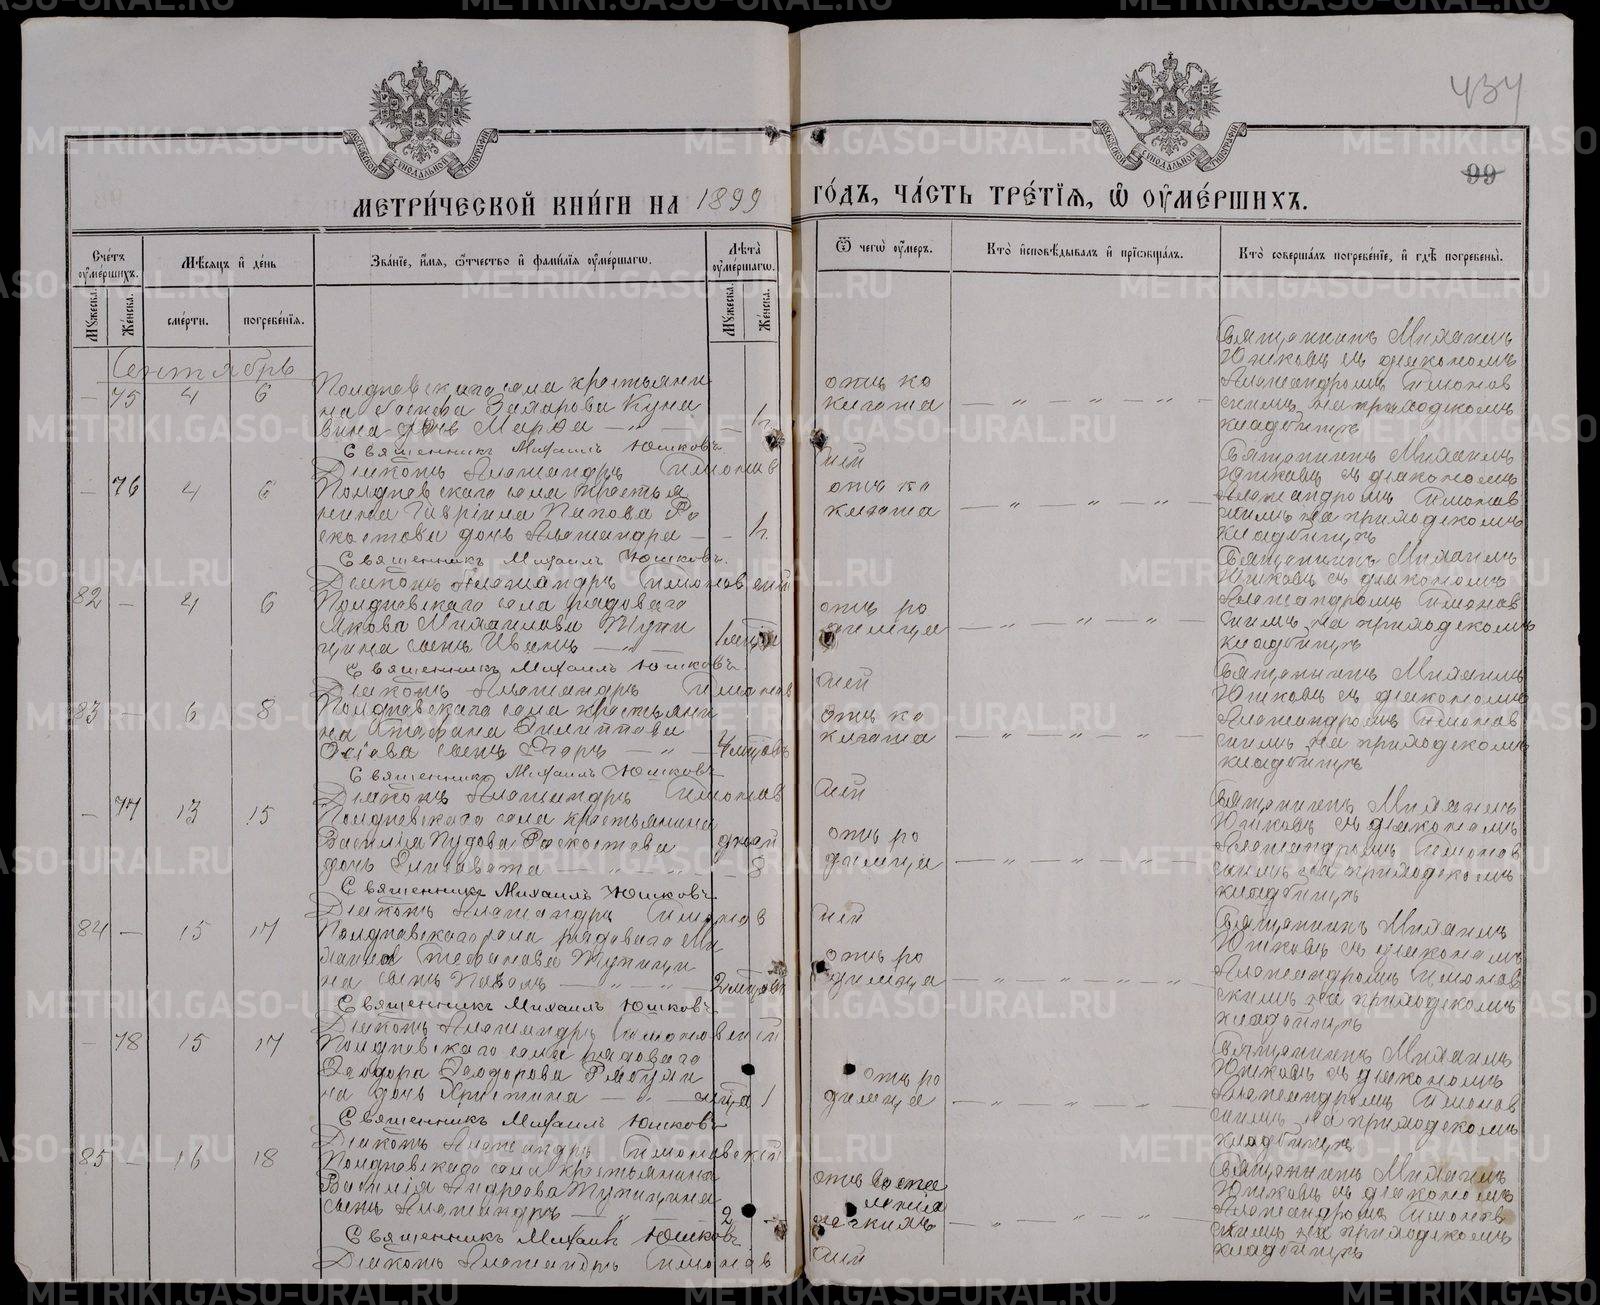 434
99
МЕТРИ́ЧЕСКОЙ КНИ́ГИ НА 1899 ГО́ДЪ, ЧА́СТЬ ТРЕ́ТІѦ, Ѡ ОУ҆МЕ́РШИХЪ.
Сче́тъ оу҆ме́ршихъ.
Мѣ́сѧцъ и҆ де́нь
Зва́нїе, и҆́мѧ, ѻ҆́тчество и҆ фами́лїѧ оу҆ме́ршагѡ.
Лѣ́та оу҆ме́ршагѡ.
Ѿ чегѡ̀ оу҆́меръ.
Кто̀ и҆сповѣ́дывалъ и҆ прїѡбща́лъ.
Кто̀ соверша́лъ погребе́нїе, и҆ гдѣ̀ погребены̀.
Мꙋ́жеска.
Же́нска.
сме́рти.
погребе́нїѧ.
Мꙋ́жеска.
Же́нска.
Сентябрь
Полдневскаго села крестьяни
на Іосифа Захарова Куна
вина дочь Марфа
— 75 4 6
отъ ко
клюша
Священникъ Михаилъ
Юшковъ съ діакономъ
Александромъ Симонов
скимъ на приходскомъ
кладбищѣ
Священникъ Михаилъ Юшковъ
Діаконъ Александръ Симоновскій
— 76 4 6
Полдневскаго села крестья
нина Гавріила Попова Ро
скостова дочь Александра
отъ ко
клюша
Священникъ Михаилъ
Юшковъ съ діакономъ
Александромъ Симонов
скимъ на приходскомъ
кладбищѣ
Священникъ Михаилъ Юшковъ
Діаконъ Александръ Симоновскій
82 — 4 6
Полдневскаго села рядоваго
Якова Михаилова Тупи
цина сынъ Иванъ
1 мѣсяц
отъ ро
димца
Священникъ Михаилъ
Юшковъ съ діакономъ
Александромъ Симонов
скимъ на приходскомъ
кладбищѣ
Священникъ Михаилъ Юшковъ
Діаконъ Александръ Симоновскій
83 — 6 8
Полдневскаго села крестьяни
на Стефана Филиппова
сынъ Егоръ
отъ ко
клюша
Священникъ Михаилъ
Юшковъ съ діакономъ
Александромъ Симонов
скимъ на приходскомъ
кладбищѣ
Священникъ Михаилъ Юшковъ
Діаконъ Александръ Симоновскій
— 77 13 15
Полдневскаго села крестьянина
Василія Пудова Роскостова
дочь Елисавета
дней
3
отъ ро
димца
Священникъ Михаилъ
Юшковъ съ діакономъ
Александромъ Симонов
скимъ на приходскомъ
кладбищѣ
Священникъ Михаилъ Юшковъ
Діаконъ Александръ Симоновскій
84 — 15 17
Полдневскаго села рядоваго Ми
хаила Стефанова Тупици
на сынъ Павелъ
отъ ро
димца
Священникъ Михаилъ
Юшковъ съ діакономъ
Александромъ Симонов
скимъ на приходскомъ
кладбищѣ
Священникъ Михаилъ Юшковъ
Діаконъ Александръ Симоновскій
— 78 15 17
Полдневскаго села рядоваго
Ѳеодора Ѳеодорова Рябухи
на дочь Христина
1
отъ ро
димца
Священникъ Михаилъ
Юшковъ съ діакономъ
Александромъ Симонов
скимъ на приходскомъ
кладбищѣ
Священникъ Михаилъ Юшковъ
Діаконъ Александръ Симоновскій
85 — 16 18
Полдневскаго села крестьянина
Василія Андреева Тупицина
сынъ Александръ
2
отъ воспа
ленія
легкихъ
Священникъ Михаилъ
Юшковъ съ діакономъ
Александромъ Симонов
скимъ на приходскомъ
кладбищѣ
Священникъ Михаилъ Юшковъ
Діаконъ Александръ Симоновскій
METRIKI.GASO-URAL.RU